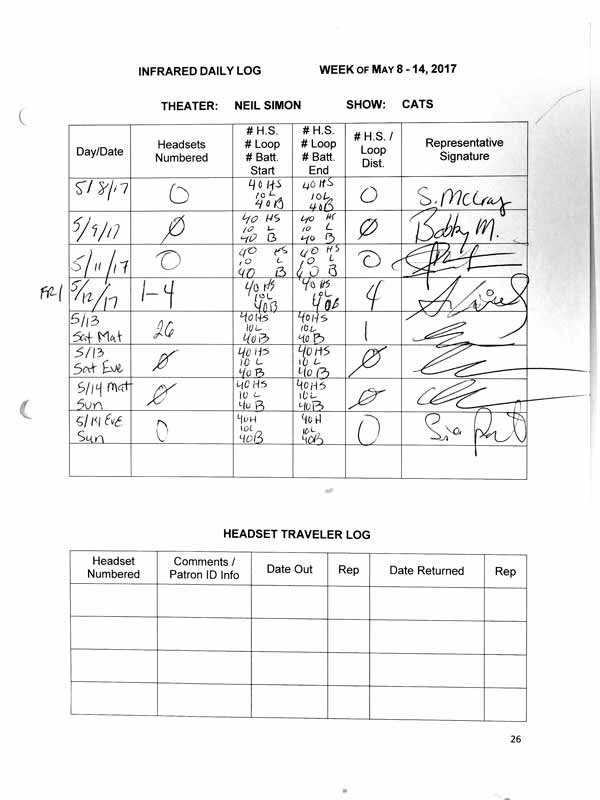 INFRARED DAILY LOG WEEK OF MAY 8 - 14, 2017
THEATER: NEIL SIMON SHOW: CATS
Day/Date
Headsets
Numbered
# H.S.
# Loop
# Batt.
Start
# H.S.
# Loop
# Batt.
End
# H.S. /
Loop
Dist.
Representative
Signature
5/8/17
0
40 HS
10 L
40 B
40 HS
10 L
40 B
0
S. McCray
5/9/17
Ø
40 HS
10 L
40 B
40 HS
10 L
40 B
Ø
Bobby M.
5/11/17
0
40 HS
10 L
40 B
40 HS
10 L
40 B
0
FRI
5/12/17
1-4
40 HS
10 L
40 B
40 HS
10 L
40B
4
5/13
Sat Mat
26
40 HS
10 L
40 B
40 HS
10 L
40 B
1
5/13
Sat Eve
Ø
40 HS
10 L
40 B
40 HS
10 L
40 B
Ø
5/14 Mat
Sun
Ø
40 HS
10 L
40 B
40 HS
10 L
40 B
Ø
5/14 EVE
Sun
0
40H
10L
40B
40H
10L
40B
0
HEADSET TRAVELER LOG
Headset
Numbered
Comments /
Patron ID Info
Date Out
Rep
Date Returned
Rep
26